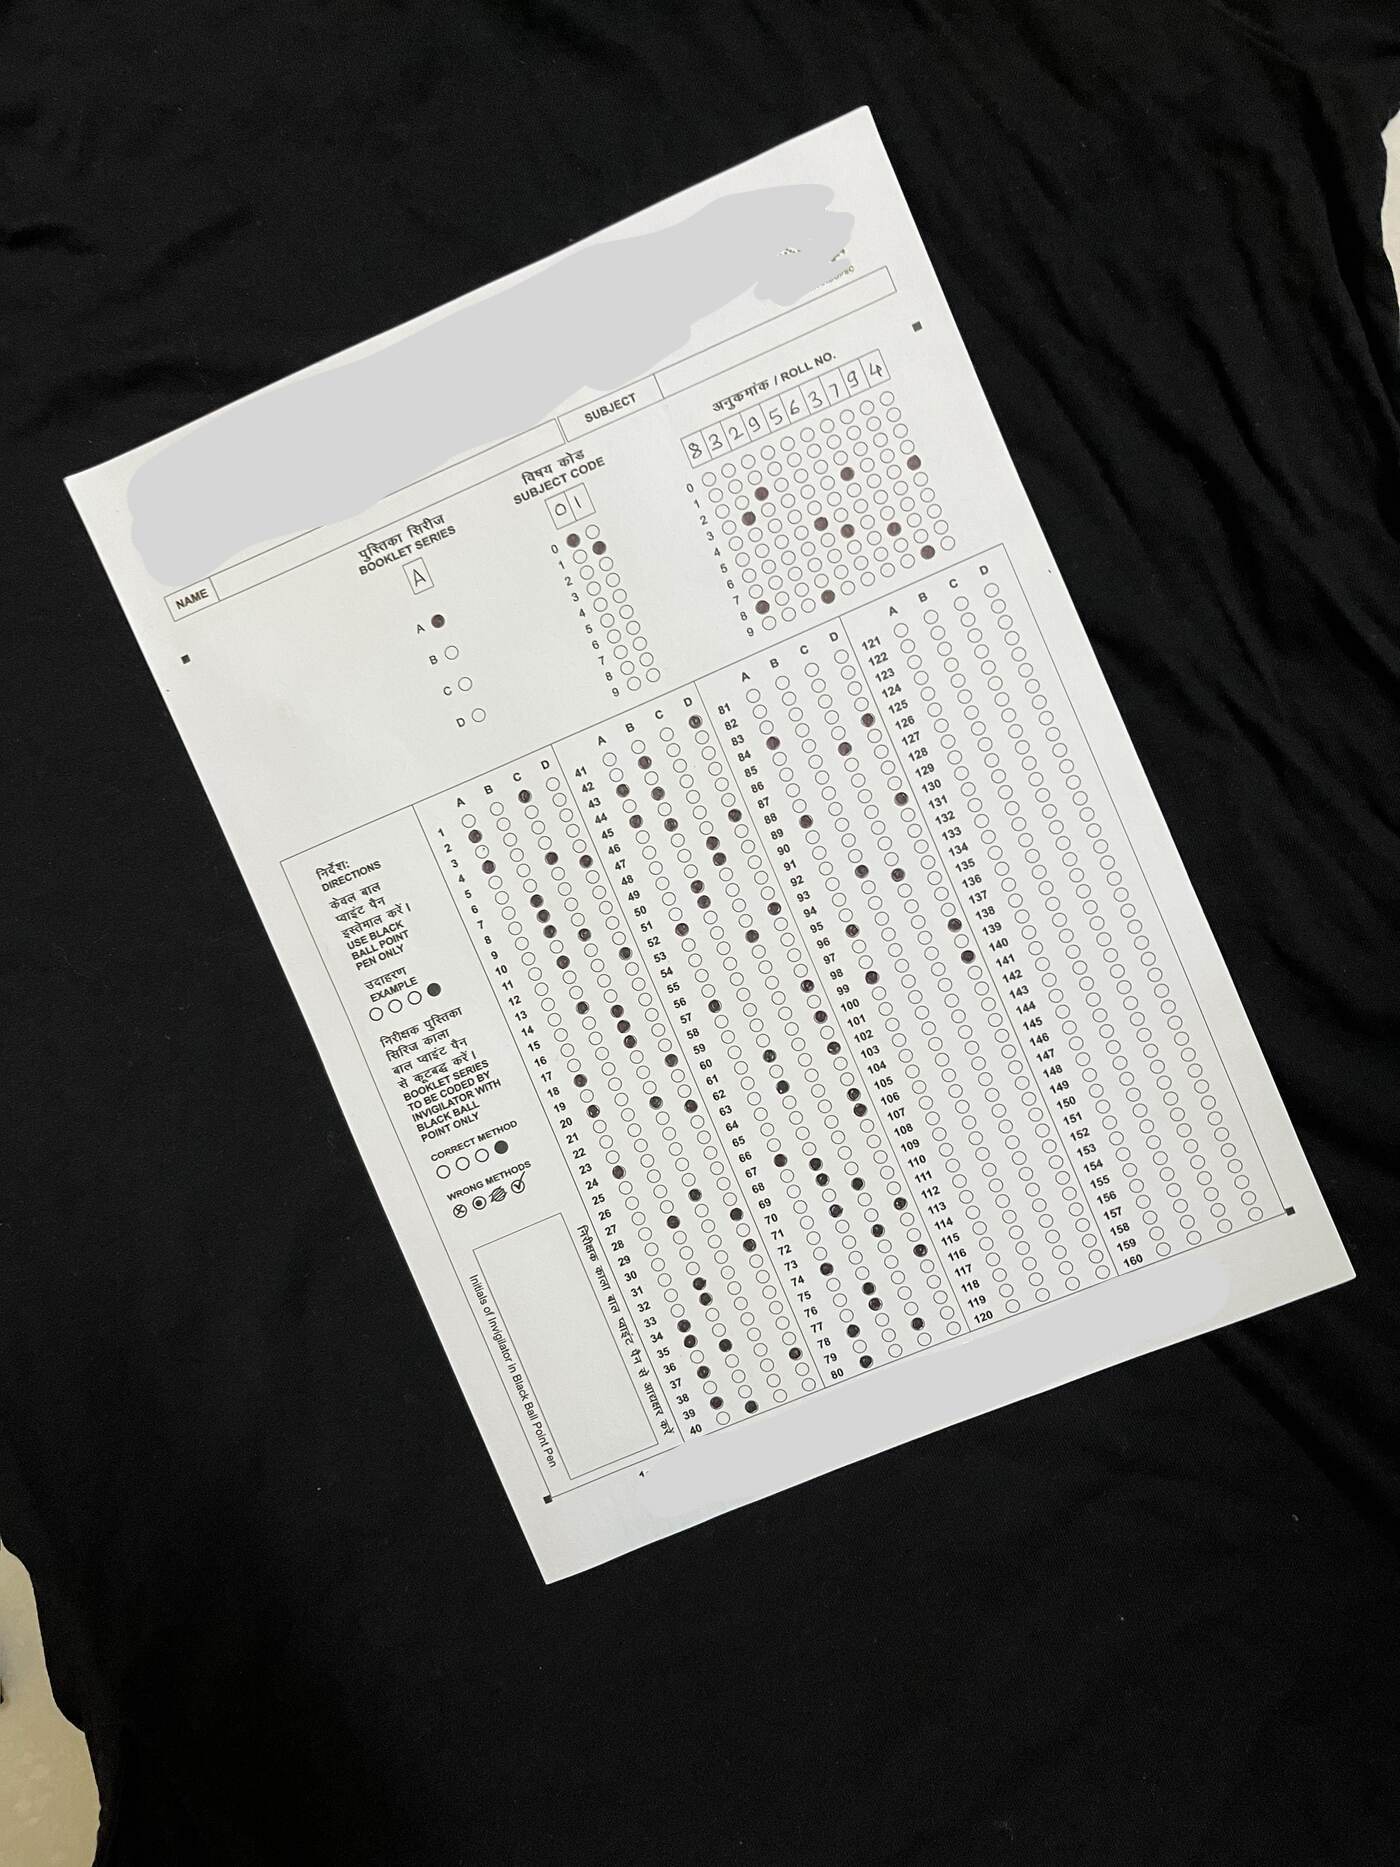 NAME
SUBJECT
पुस्तिका सिरीज
BOOKLET SERIES
A
A
B
C
D
विषय कोड
SUBJECT CODE
0 1
0
1
2
3
4
5
6
7
8
9
अनुकमांक / ROLL NO.
8 3 2 9 5 6 3 7 9 4
0
1
2
3
4
5
6
7
8
9
निर्देश:
DIRECTIONS
केवल बाल
प्वाइंट पैन
इस्तेमाल करें।
USE BLACK
BALL POINT
PEN ONLY
उदाहरण
EXAMPLE
निरीक्षक पुस्तिका
सिरिज काला
बाल प्वाइंट पैन
से कूटबद्ध करें।
BOOKLET SERIES
TO BE CODED BY
INVIGILATOR WITH
BLACK BALL
POINT ONLY
CORRECT METHOD
WRONG METHODS
निरीक्षक काला बाल प्वाइंट पैन से आद्यक्षर करें
Initials of Invigilator in Black Ball Point Pen
A B C D
1
2
3
4
5
6
7
8
9
10
11
12
13
14
15
16
17
18
19
20
21
22
23
24
25
26
27
28
29
30
31
32
33
34
35
36
37
38
39
40
A B C D
41
42
43
44
45
46
47
48
49
50
51
52
53
54
55
56
57
58
59
60
61
62
63
64
65
66
67
68
69
70
71
72
73
74
75
76
77
78
79
80
A B C D
81
82
83
84
85
86
87
88
89
90
91
92
93
94
95
96
97
98
99
100
101
102
103
104
105
106
107
108
109
110
111
112
113
114
115
116
117
118
119
120
A B C D
121
122
123
124
125
126
127
128
129
130
131
132
133
134
135
136
137
138
139
140
141
142
143
144
145
146
147
148
149
150
151
152
153
154
155
156
157
158
159
160